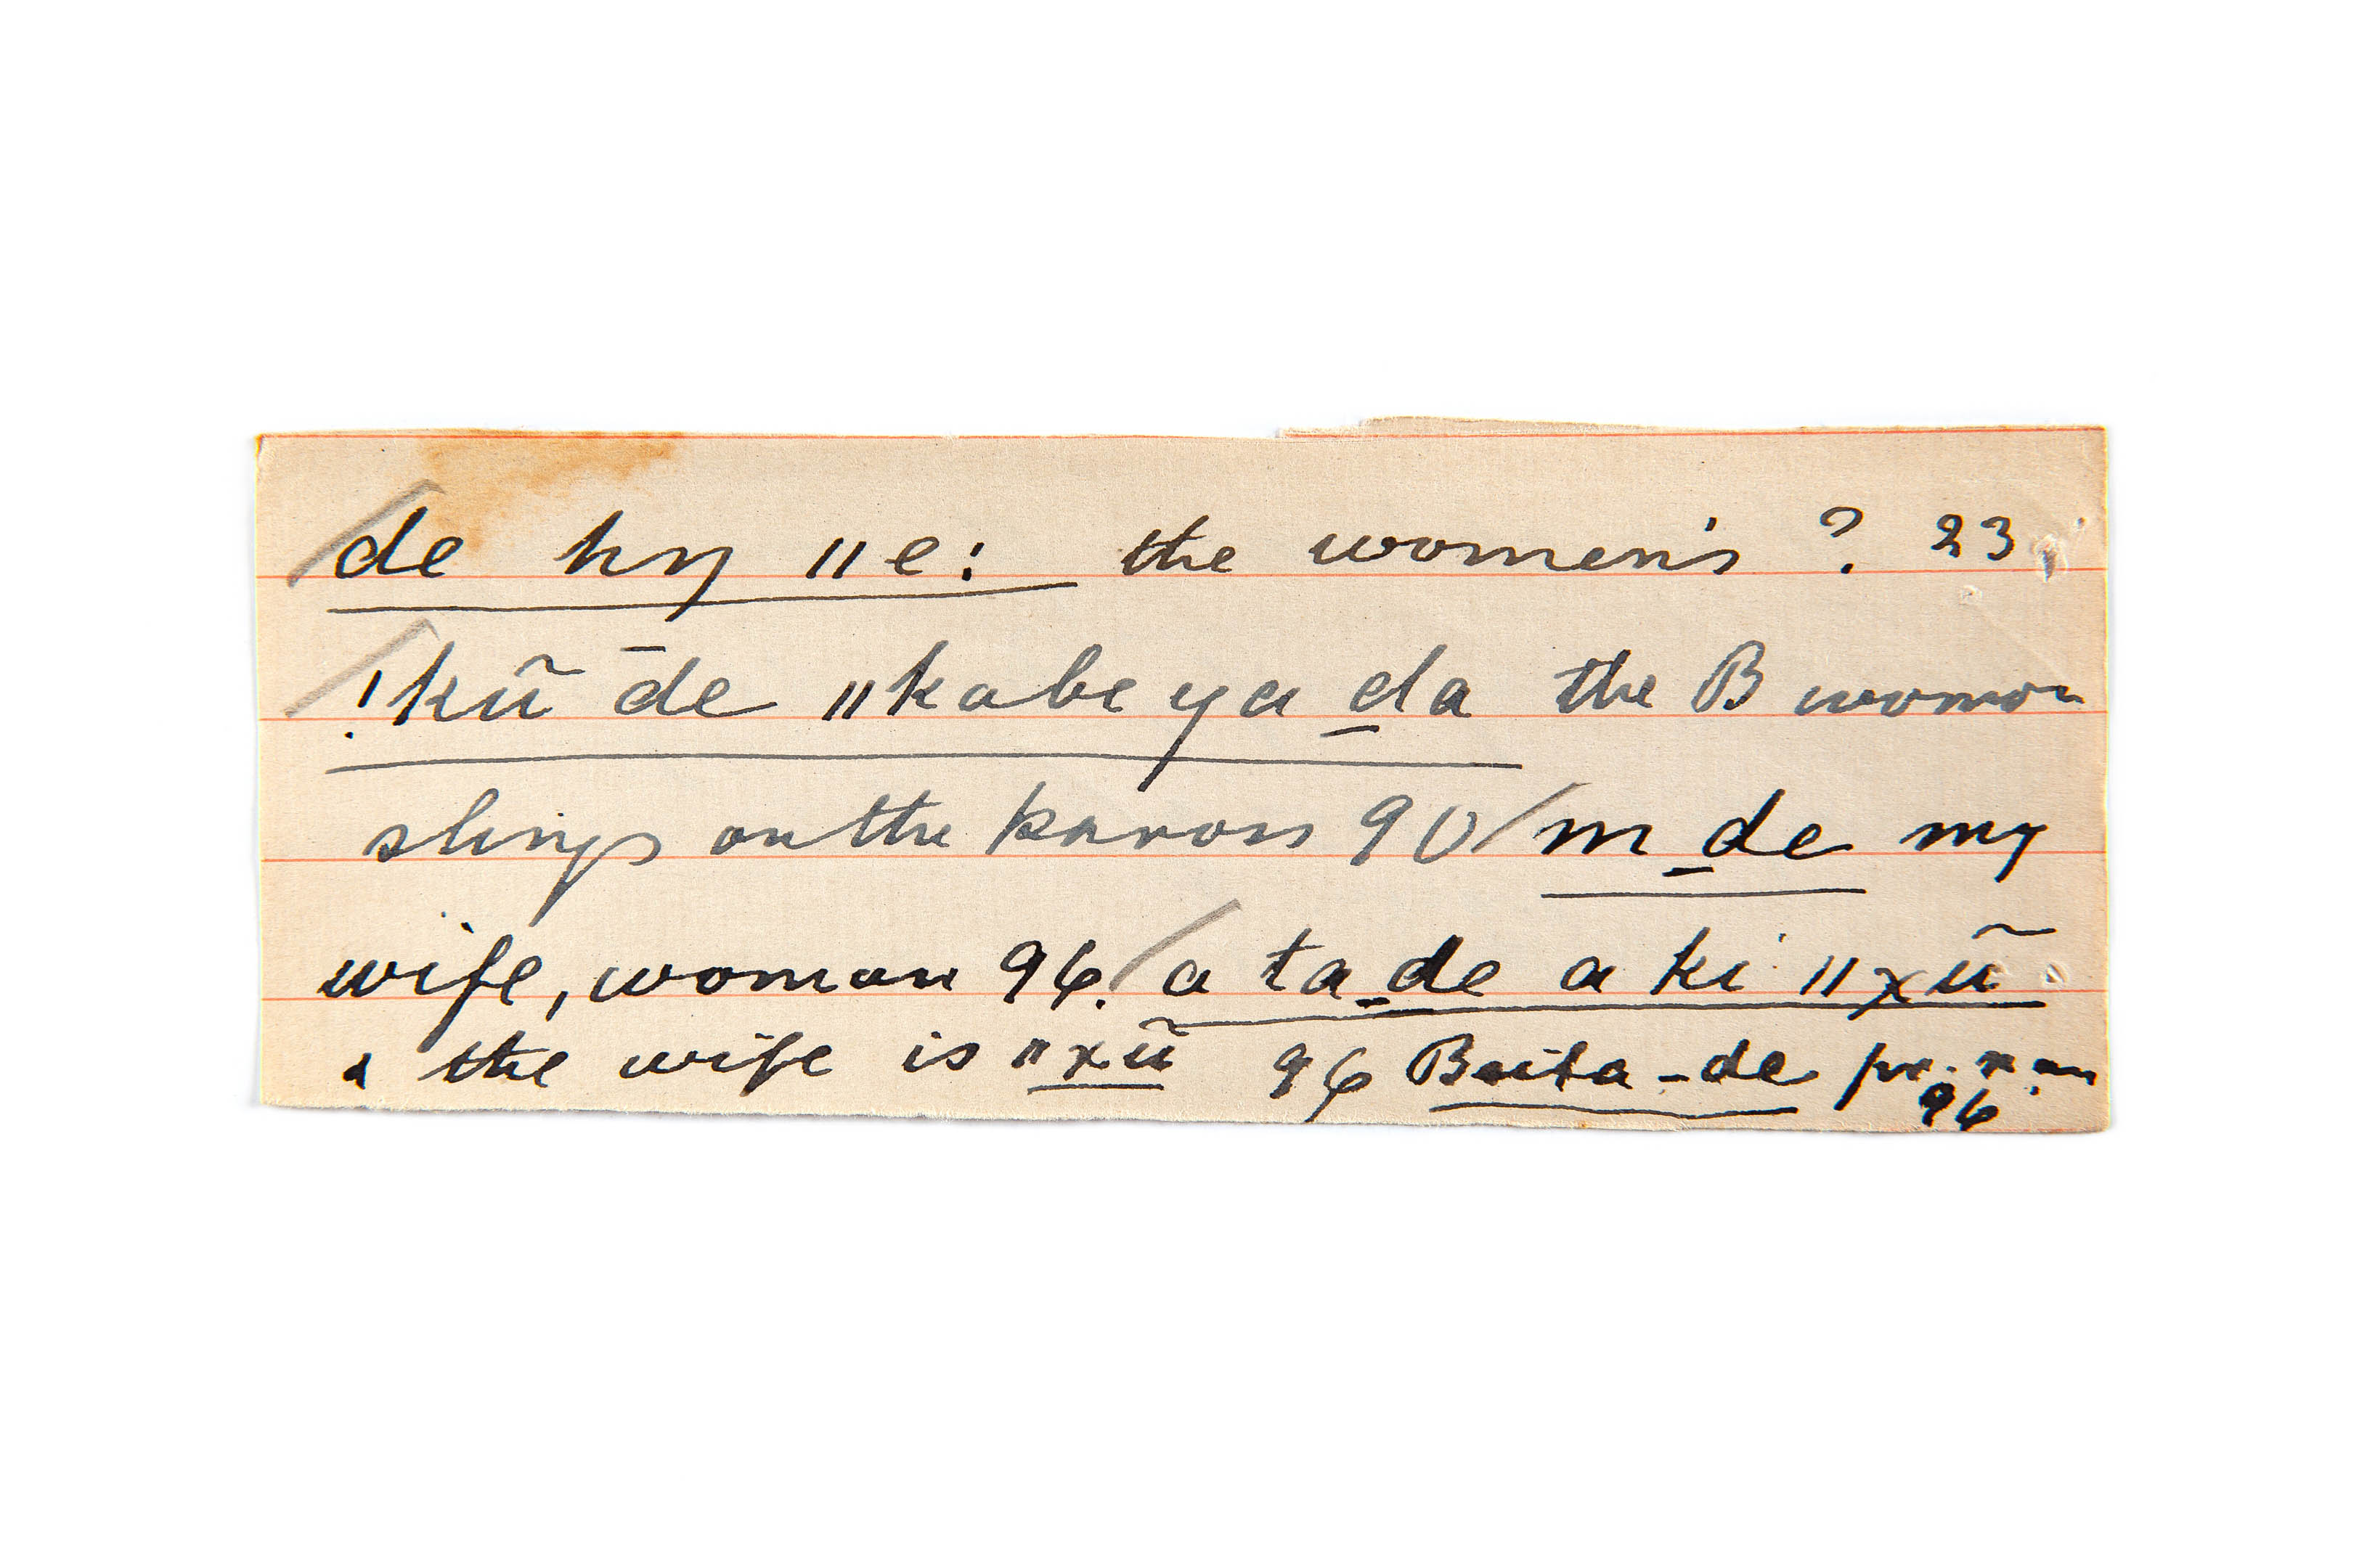 /de hŋ ǁe: the women's ? 23
/!kũ ̄de ǁkabe ya _da the B woman
slings on the kaross 90 /m _de my
wife, woman 96. /a ta _de a ki ǁxũ
the wife is ǁxũ 96 Baita _de pr. n
96